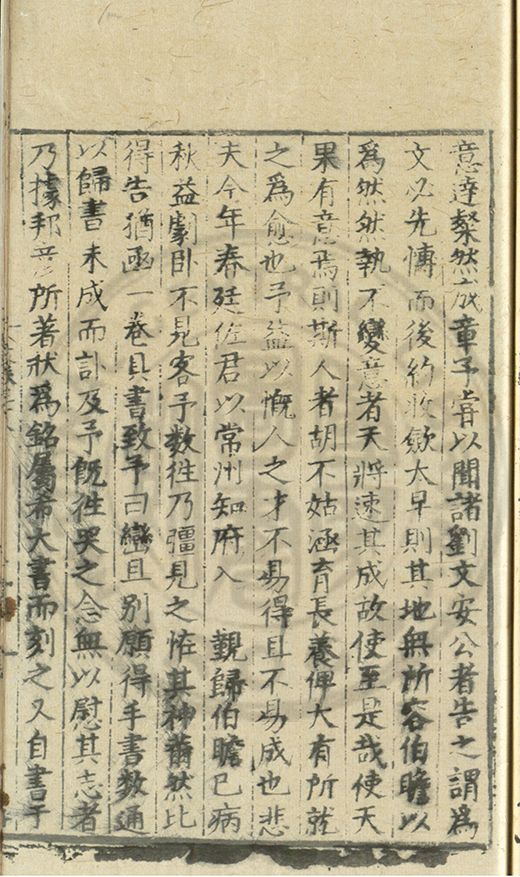 意達粲然成章予嘗以聞諸劉文安公者告之謂為
文必先博而後約收歛太早則其地無所容伯瞻以
為然然執不變意者天將速其成故使至是哉使天
果有意焉則斯人者胡不姑涵育長養俾大有所就
之為愈也予益以慨人之才不易得且不易成也悲
夫今年春廷佐君以常州知府入 覲歸伯瞻已病
秋益劇臥不見客予數徃乃彊見之恠其神薾然比
得告猶函一巻具書致予曰巒且别願得手書數通
以歸書未成而訃及予旣徃哭之念無以慰其志者
乃據邦彥所著狀為銘屬希大書而刻之又自書予